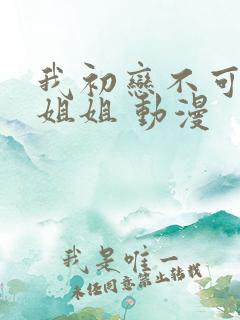 我初戀不可
姐姐 動漫
我是唯一
未任同意禁止轉載